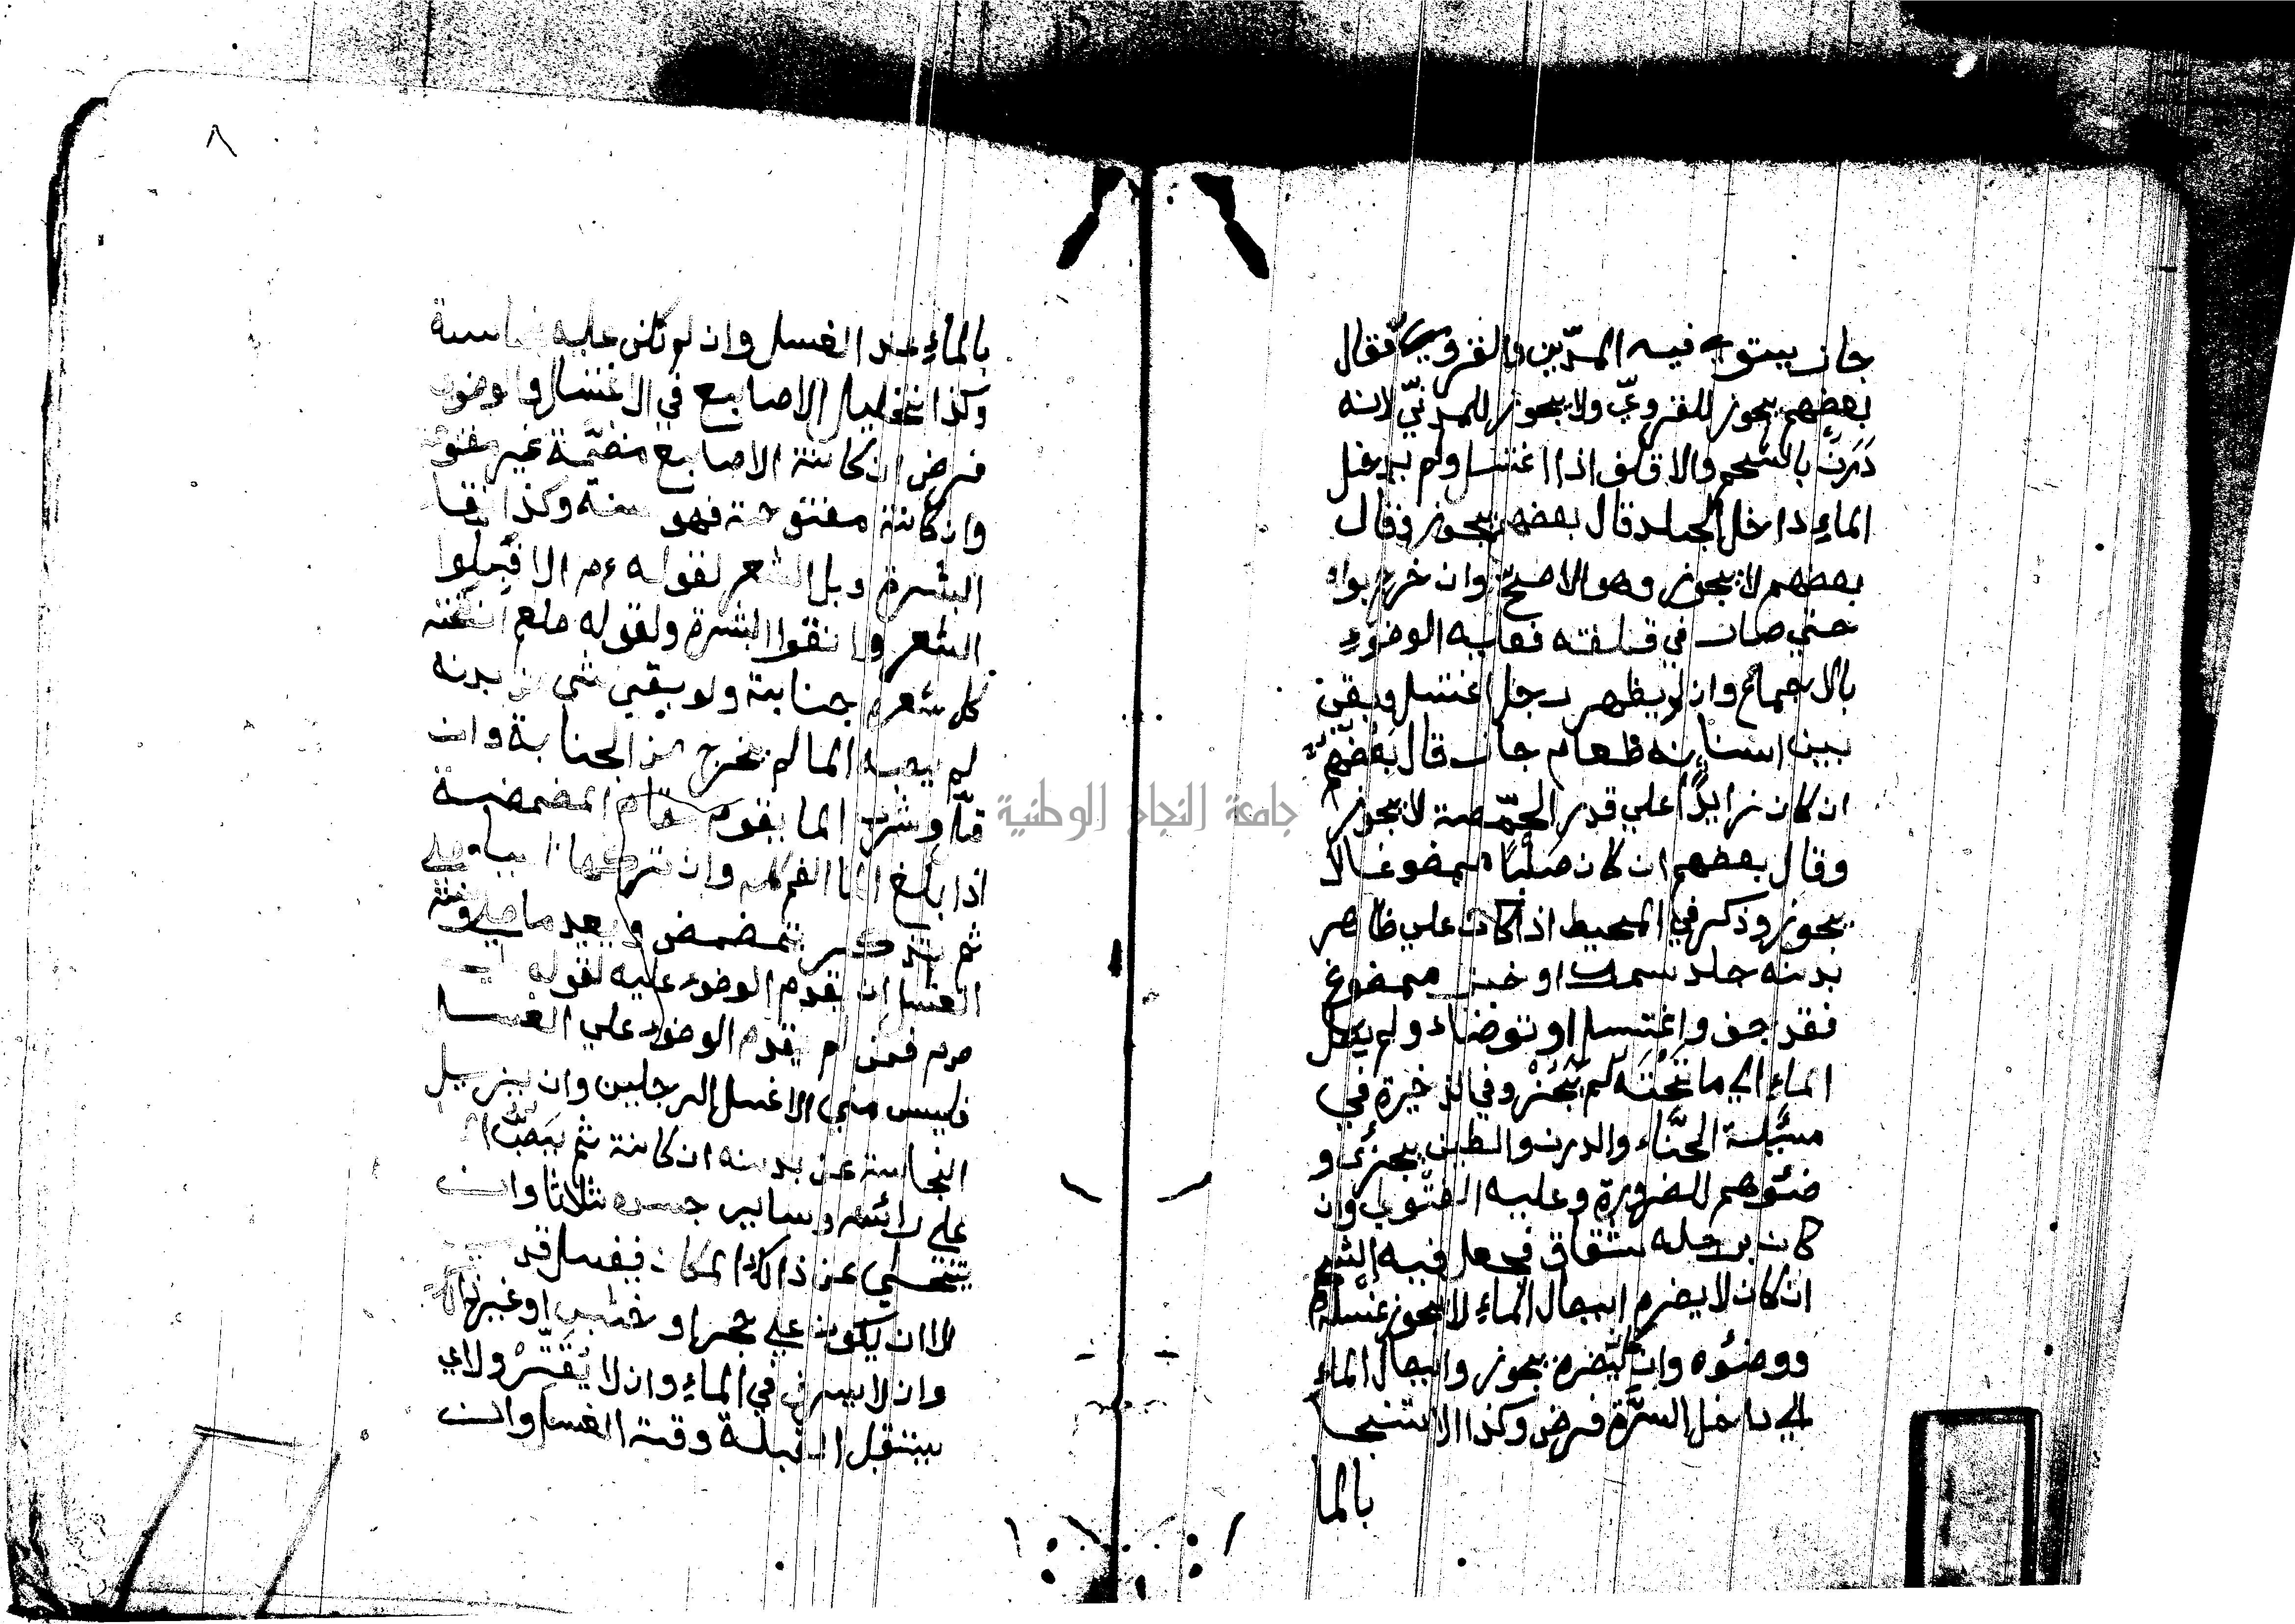 جاز يستوي فيه المدّين والقرويّ فقال
بعضهم يجوز للقرويّ ولا يجوز للمدنيّ لانه
دَرَنٌ بالشحم والاقلف اذا اغتسل ولم يدخل
الماءِ داخل الجلد قال بعضهم يجوز وقال
بعضهم لا يجوز وهو الاصحّ وان خرج بوله
حتي صار في قلفته فعليه الوضوءِ
بالاجماع وان لم يظهر رجل اغتسل وبقي
بين اسنانه طعام جاز قال بعضهم
ان كان زايدًا علي قدر الحمّصة لا يجوز
وقال بعضهم ان كان صلبًا ممضوغا لا
يجوز وذكر في المحيط اذا كان علي ظاهر
بدنه جلد سمك او خبز ممضوغ
فقد جف واغتسل او توضاء ولم يصل
الماءِ الي ما تحته لم يَجُزْ وفي الذخيرة في
مسئلة الحنّاء والدرن والطين يجزئ و
ضئوهم للضرورة وعليه الفتوي وان
كان برجله شقاق فجعل فيه الشحم
ان كان لا يضره ايصال الماءِ لا يجوز غسله
ووضئوه وان يضره يجوز وايصال الماءِ
الي داخل السرّة فرض وكذا الاستنجا
بالما
٨
بالماءِ عند الغسل وان لم تكن عليه نجاسة
وكذا تخليل الاصابع في الاغتسال والوضو
فرض ان كانت الاصابع منضمّة غير مفتو
وان كانت مفتوحة فهو سنة وكذا انقا
البشرة وبل الشعر لقوله ءم الا فبلوا
الشعر وانقوا البشرة ولقوله صلعم تحت
كل شعرة جنابة ولو بقي شي من بدنه
لم يصبه الما لم يخرج من الجنابة وان
قلّ وشرب الما يقوم مقام المضمضة
اذا بلغ الما الفم كله وان تركها ناسيا
ثم تذكر تمضمض ويعيد ما صلي وسنة
الغسل ان يقدم الوضوء عليه لقوله
ءم فمن لم يقدم الوضوء علي الغسل
فليس مني الا غسل الرجلين وان يزيل
النجاسة عن بدنه ان كانت ثم يَصُبُّ
علي رائسه وساير جسده ثلاثا وان
يتنحي عن ذالك المكان فيغسل قد
الا ان يكون علي حجر او خشب او غيرها
وان لا يسرف في الماءِ وان لا يُقَتِّرْ ولا
يستقبل القبلة وقت الغسل وان
جامعة النجاح الوطنية